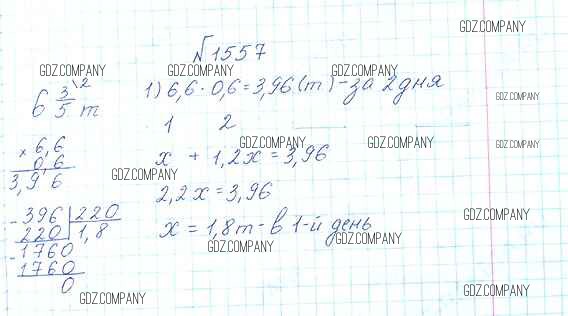 GDZ.COMPANY
№1557
GDZ.COMPANY GDZ.COMPANY GDZ.COMPANY
6 3/5 \2 т
1) 6,6 · 0,6 = 3,96 (т) - за 2 дня
GDZ.COMPANY
1 2
× 6,6
0,6
3,96
GDZ.COMPANY GDZ.COMPANY
x + 1,2x = 3,96
GDZ.COMPANY
2,2x = 3,96
- 396 | 220
220 | 1,8
- 1760
1760
0
x = 1,8 т - в 1-й день
GDZ.COMPANY
GDZ.COMPANY GDZ.COMPANY
GDZ.COMPANY GDZ.COMPANY